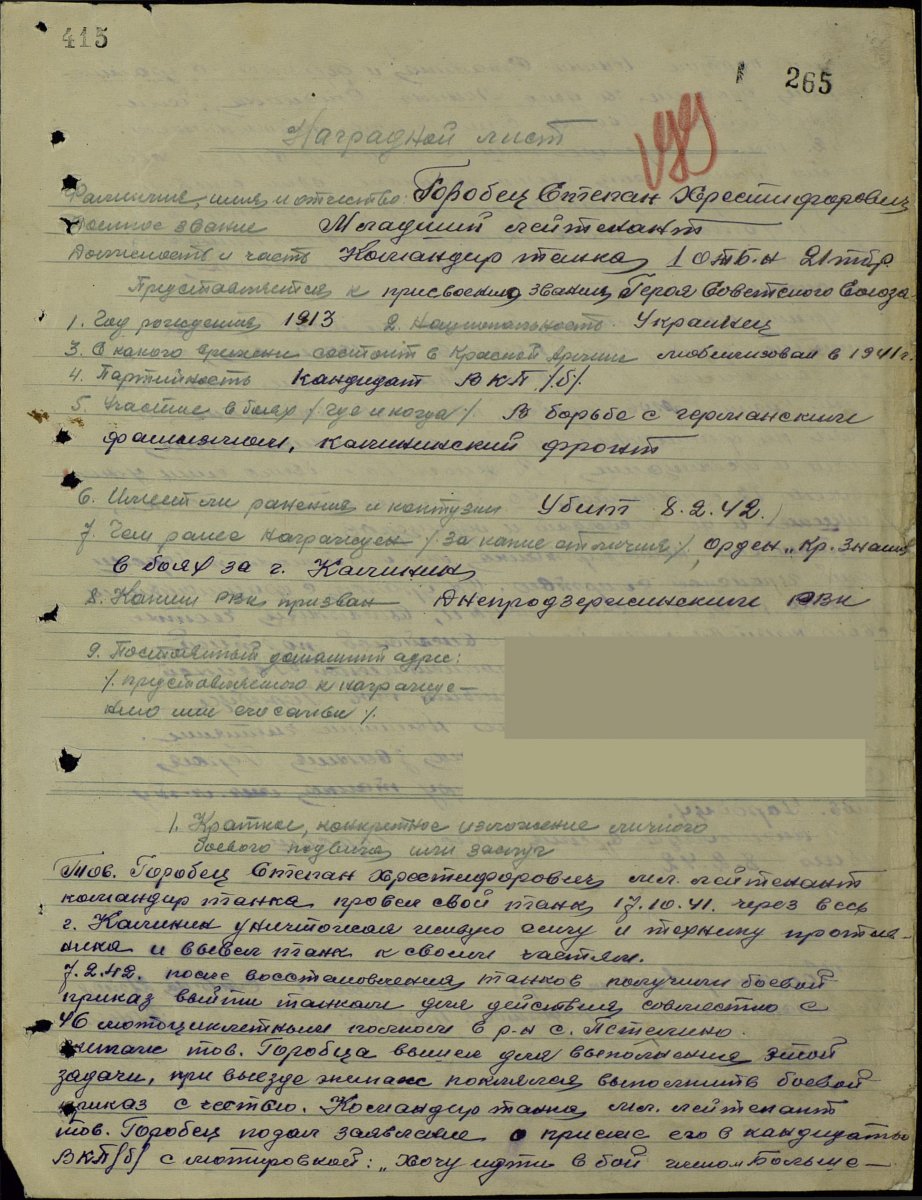 415
265
Наградной лист
Фамилия, имя и отчество Горобец Степан Христифорович
Военное звание Младший лейтенант
Должность и часть Командир танка 1 отб-н 21 тбр.
Представляется к присвоению звания Героя Советского Союза
1. Год рождения 1913 2. Национальность Украинец
3. С какого времени состоит в Красной Армии мобилизован в 1941 г.
4. Партийность Кандидат ВКП /б/.
5. Участие в боях /где и когда/. В борьбе с германским
фашизмом, Калининский фронт
6. Имеет ли ранения и контузии Убит 8.2.42.
7. Чем ранее награжден /за какие отличия/. Орден „Кр. Знамя
в боях за г. Калинин
8. Каким РВК призван Днепродзержинским РВК
9. Постоянный домашний адрес:
/. представляемого к награжде-
нию или семьи /.
1. Краткое, конкретное изложение личного
боевого подвига или заслуг
Тов. Горобец Степан Христифорович мл. лейтенант
командир танка провел свой танк 17.10.41. через весь
г. Калинин уничтожая живую силу и технику против-
ника и вывел танк к своим частям.
7.2.42. после восстановления танков получили боевой
приказ выйти танкам для действия совместно с
46 мотоциклетным полком в р-н с.
Экипаж тов. Горобца вышел для выполнения этой
задачи, при выезде экипаж поклялся выполнить боевой
приказ с честью. Командир танка мл. лейтенант
тов. Горобец подал заявление о приеме его в кандидаты
ВКП/б/ с мотировкой: „Хочу идти в бой членом Больше-